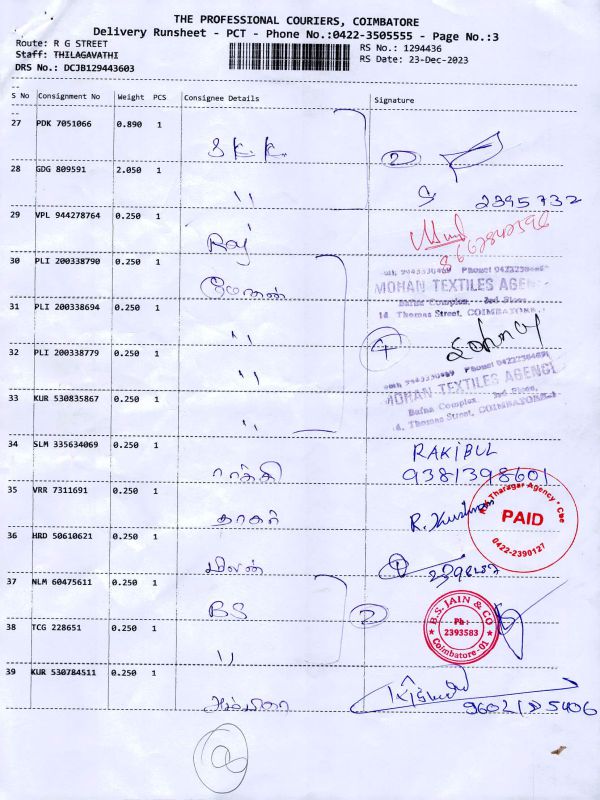 THE PROFESSIONAL COURIERS, COIMBATORE
Delivery Runsheet - PCT - Phone No.:0422-3505555 - Page No.:3
Route: R G STREET
RS No.: 1294436
Staff: THILAGAVATHI
RS Date: 23-Dec-2023
DRS No.: DCJB129443603
S No Consignment No Weight PCS Consignee Details Signature
27 PDK 7051066 0.890 1
S.K.K.
2
28 GDG 809591 2.050 1
2395732
29 VPL 944278764 0.250 1
Raj
30 PLI 200338790 0.250 1
மோகன்
MOHAN TEXTILES AGENCY
Bafna Complex, 2nd Floor,
14, Thomas Street, COIMBATORE
31 PLI 200338694 0.250 1
32 PLI 200338779 0.250 1
33 KUR 530835867 0.250 1
MOHAN TEXTILES AGENCY
Bafna Complex 2nd Floor,
14, Thomas Street, COIMBATORE
34 SLM 335634069 0.250 1
RAKIBUL
9381398601
35 VRR 7311691 0.250 1
தாகர்
R. Kushman
Tharagar Agency • Cbe
PAID
0422-2390127
36 HRD 50610621 0.250 1
மிலன்
1
37 NLM 60475611 0.250 1
BS
2
B.S. JAIN & CO
Ph :
2393583
Coimbatore-01
38 TCG 228651 0.250 1
39 KUR 530784511 0.250 1
அம்பிகை